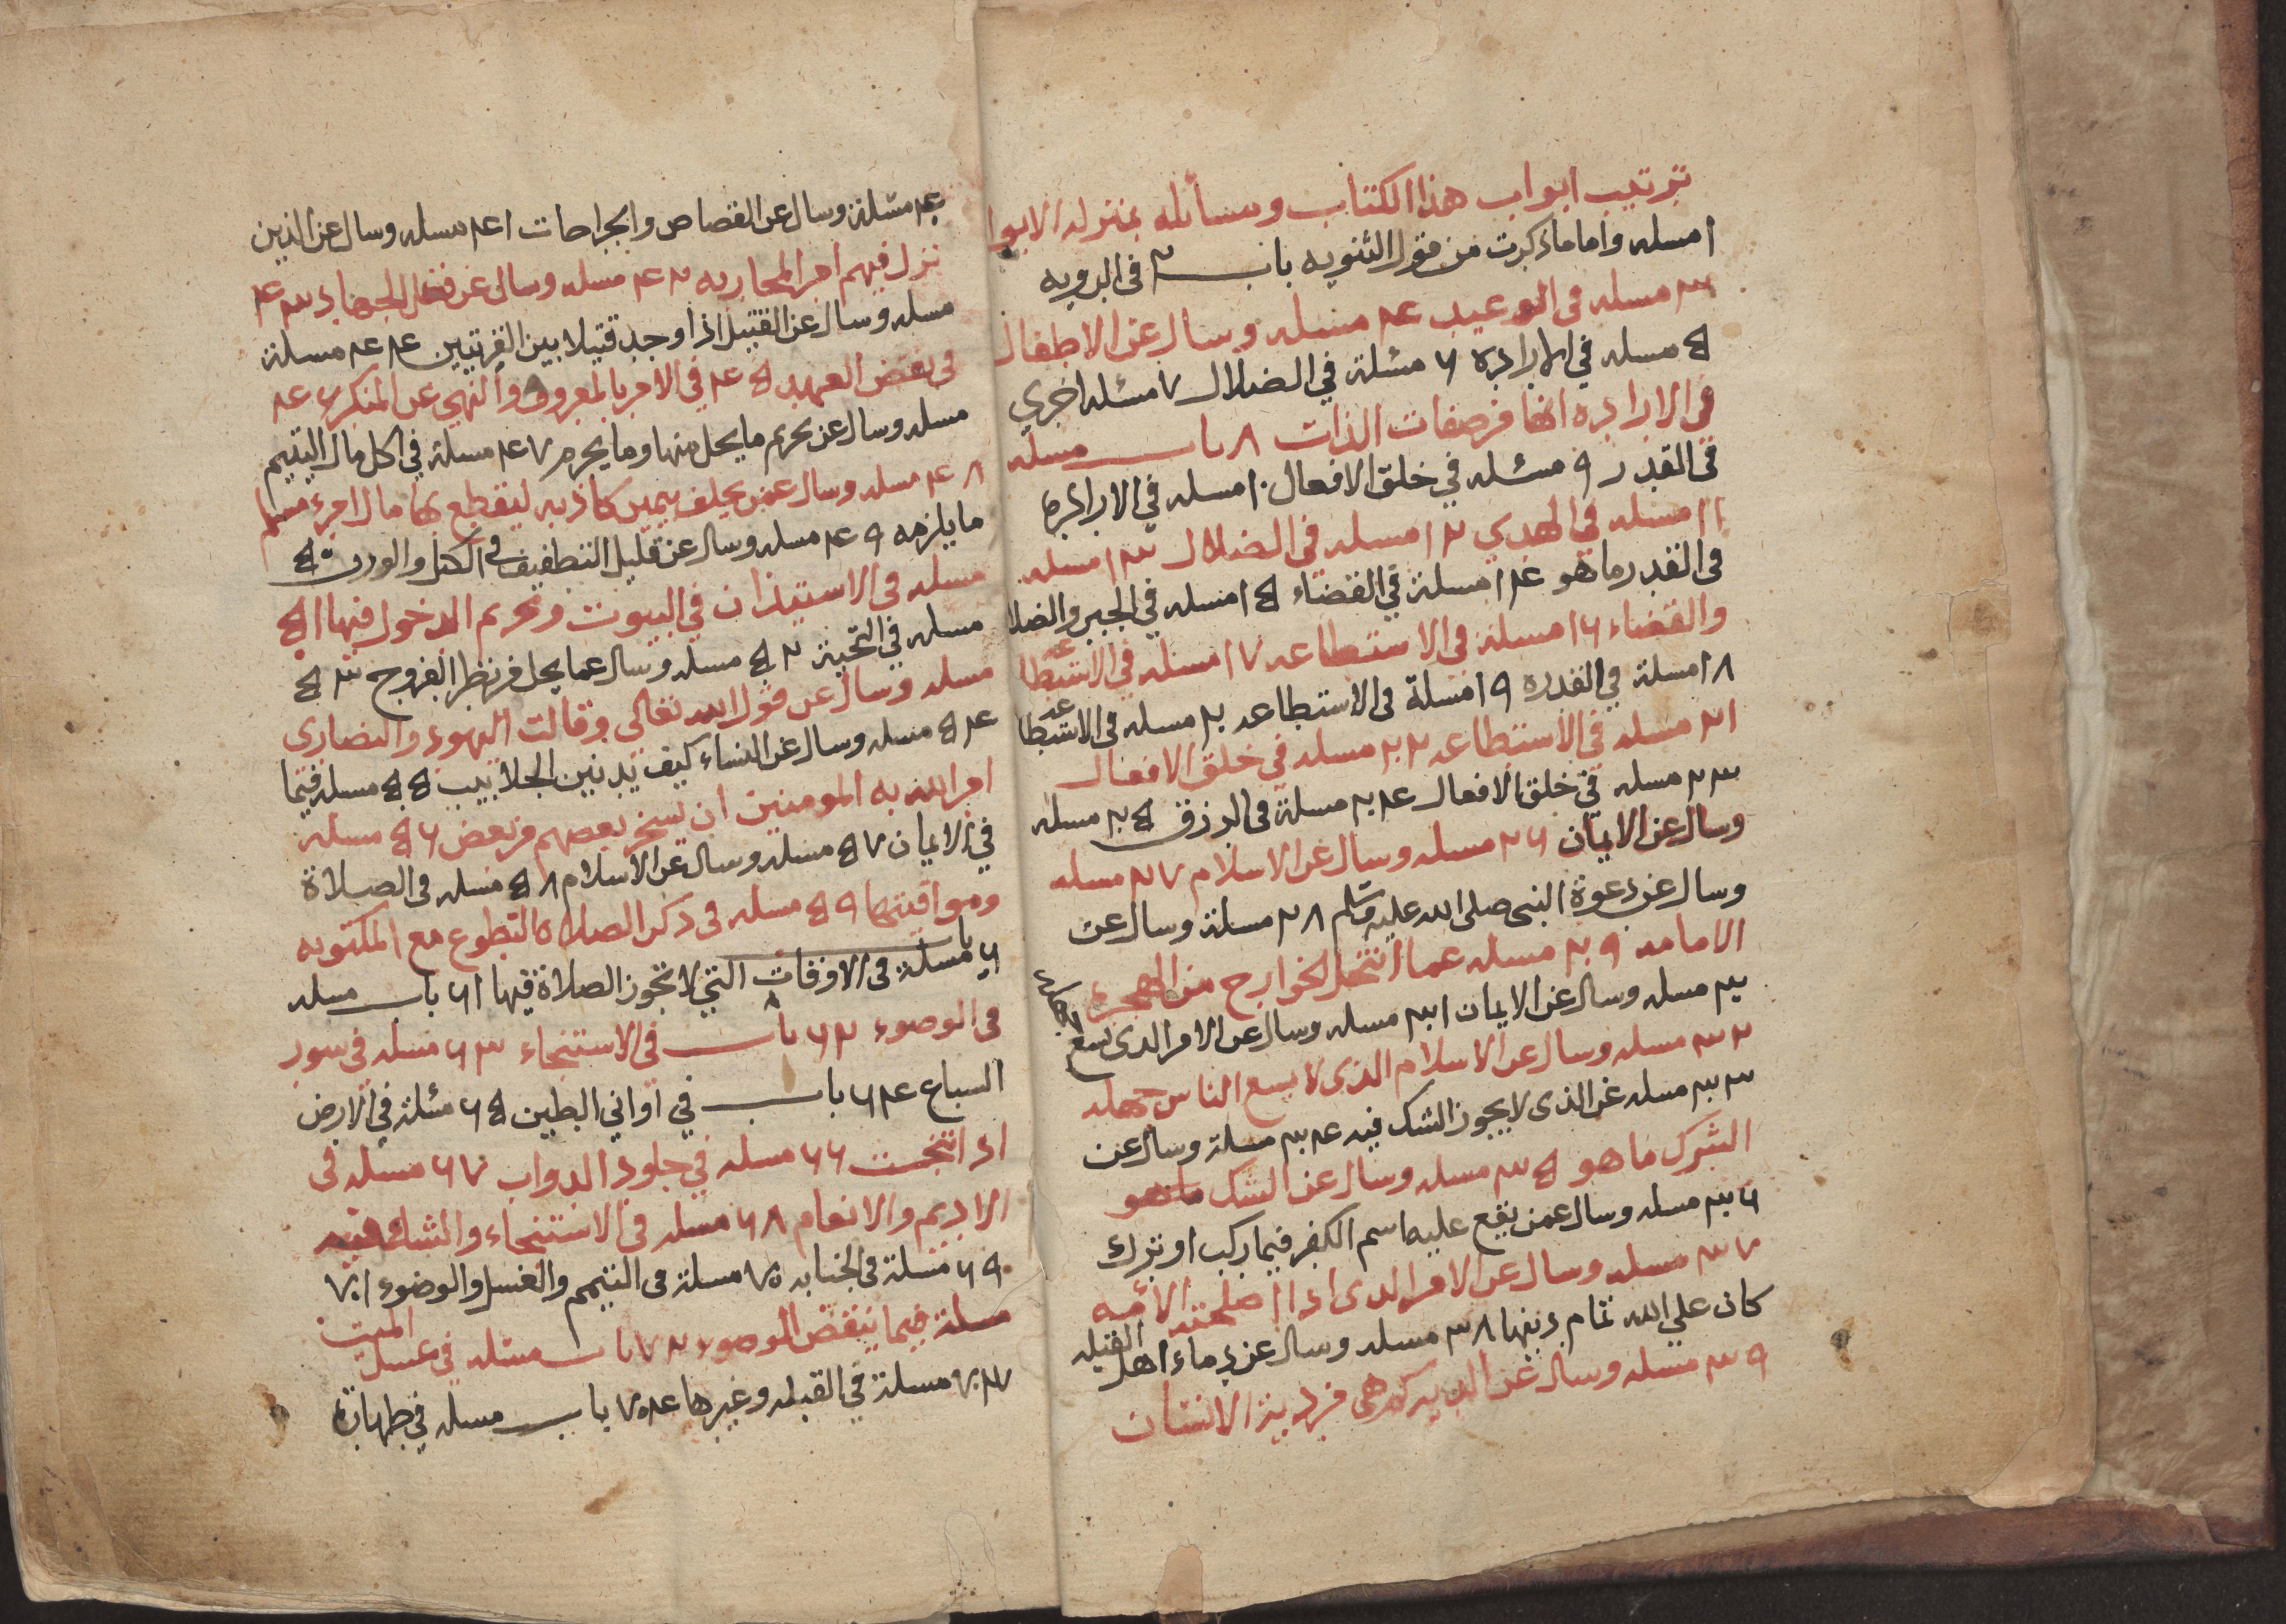 ترتيب ابواب هذا الكتاب ومسائله بمنزله الابوا
١ مسله واما ماذكرت من قول الثنويه باب ٢ في الرويه
٣ مسله في الوعيد ٤ مسله وسال عن الاطفال
٥ مسله في الاراده ٦ مسئلة في الضلال ٧ مسئله اخري
في الاراده انها من صفات الذات ٨ باب مسله
في القدر ٩ مسئله في خلق الافعال ١٠ مسله في الاراده
١١ مسله في الهدي ١٢ مسله في الضلال ١٣ مسله
في القدر ما هو ١٤ مسلة في القضاء ١٥ مسله في الجبر والضلا
والقضاء ١٦ مسلة في الاستطاعه ١٧ مسئله في الاستطاعه
١٨ مسلة في القدره ١٩ مسلة في الاستطاعه ٢٠ مسله في الاستطاعه
٢١ مسله في الاستطاعه ٢٢ مسله في خلق الافعال
٢٣ مسله في خلق الافعال ٢٤ مسلة في الرزق ٢٥ مسله
وسال عن الايمان ٢٦ مسله وسال عن الاسلام ٢٧ مسله
وسال عن دعوة النبي صلى الله عليه وسلم ٢٨ مسلة وسال عن
الامامه ٢٩ مسله عما انتحل الخوارج من الهجرة
٣٠ مسله وسال عن الايمان ٣١ مسله وسال عن الامر الذى يسع جهله
٣٢ مسله وسال عن الاسلام الذى لا يسع الناس جهله
٣٣ مسله عن الذى لا يجوز الشك فيه ٣٤ مسلة وسال عن
الشرك ما هو ٣٥ مسله وسال عن الشك ما هو
٣٦ مسله وسال عمن يقع عليه اسم الكفر فيما ركب او ترك
٣٧ مسله وسال عن الامر الذى اذا اصلحته الائمه
كان على الله تمام دينها ٣٨ مسله وسال عن دماء اهل القبله
٣٩ مسله وسال عن الدين هي من دين الانسان
٤٠ مسئلة وسال عن القصاص والجراحات ٤١ مسله وسال عن الذين
نزل فيهم امر المحاربه ٤٢ مسله وسال عن فضل الجهاد ٤٣
مسله وسال عن القتيل اذا وجد قتيلا بين القريتين ٤٤ مسلة
في نقض العهد ٤٥ في الامر بالمعروف والنهي عن المنكر ٤٦
مسله وسال عن تحريم ما يحل منها وما يحرم ٤٧ مسلة في اكل مال اليتيم
٤٨ مسله وسال عمن يحلف بيمين كاذبه ليقطع بها مال امرء مسلم
ما يلزمه ٤٩ مسله وسال عن قليل التطفيف في الكيل والوزن ٥٠
مسله في الاستيذان في البيوت وتحريم الدخول فيها ٥١
مسله في التحية ٥٢ مسله وسال عما يحل من نظر الفروج ٥٣
مسله وسال عن قول الله تعالى وقالت اليهود والنصارى
٥٤ مسله وسال عن النساء كيف يدنين الجلابيب ٥٥ مسله فيما
امر الله به المومنين ان يسخر بعضهم من بعض ٥٦ مسله
في الايمان ٥٧ مسله وسال عن الاسلام ٥٨ مسله في الصلاة
ومواقيتها ٥٩ مسله في ذكر الصلاة التطوع مع المكتوبه
٦٠ باب مسلة في الاوقات التي لا تجوز الصلاة فيها ٦١ باب مسله
في الوضوء ٦٢ باب في الاستنجاء ٦٣ مسله في سور
السباع ٦٤ باب في اواني البطين ٦٥ مسئلة في الارض
اذا تنجست ٦٦ مسله في جلود الدواب ٦٧ مسله في
الاديم والانعام ٦٨ مسله في الاستنجاء والشك فيه
٦٩ مسلة في الجنابه ٧٠ مسلة في التيمم والغسل والوضوء ٧١
مسلة فيما ينقض الوضوء ٧٢ باب مسئله في غسل الميت
٧٣ مسلة في القبله وغيرها ٧٤ باب مسله في طهارة